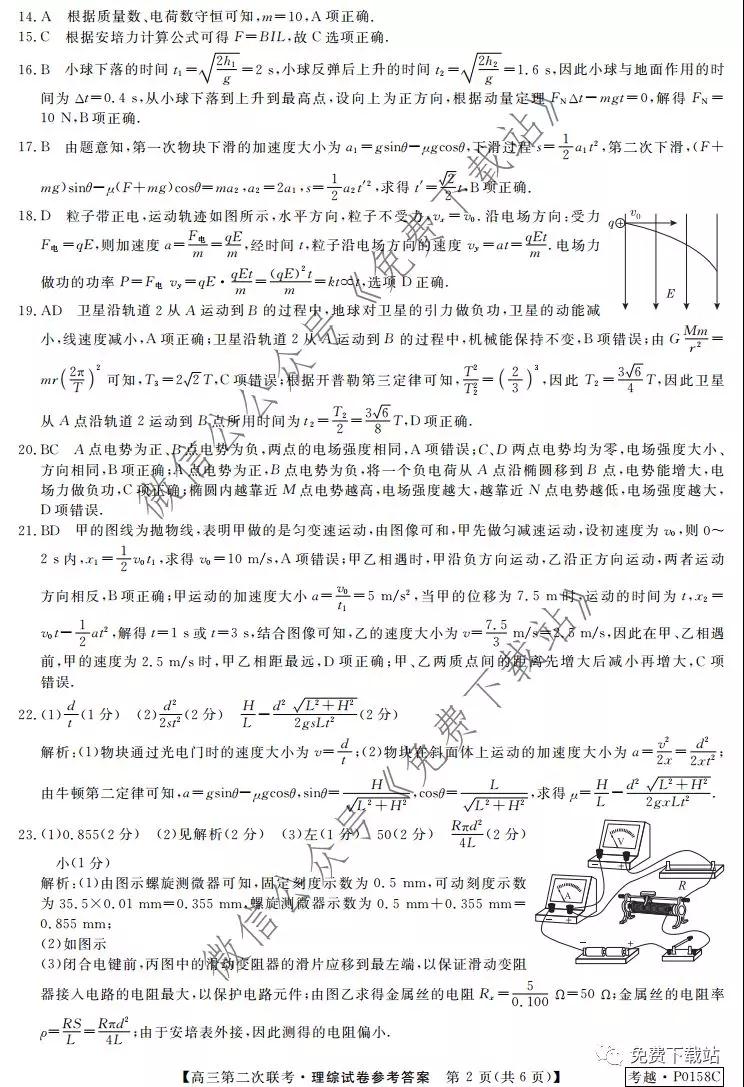 14. A 根据质量数、电荷数守恒可知,m=10,A 项正确.
15. C 根据安培力计算公式可得 F=BIL,故 C 选项正确.
16. B 小球下落的时间 t₁=√(2h₁/g)=2 s,小球反弹后上升的时间 t₂=√(2h₂/g)=1.6 s,因此小球与地面作用的时
间为 Δt=0.4 s,从小球下落到上升到最高点,设向上为正方向,根据动量定理 F_NΔt−mgt=0,解得 F_N=
10 N,B 项正确.
17. B 由题意知,第一次物块下滑的加速度大小为 a₁=gsinθ−μgcosθ,下滑过程 s=1/2 a₁t²,第二次下滑,(F+
mg)sinθ−μ(F+mg)cosθ=ma₂,a₂=2a₁,s=1/2 a₂t′²,求得 t′=√2/2 t,B 项正确.
18. D 粒子带正电,运动轨迹如图所示,水平方向,粒子不受力,vₓ=v₀.沿电场方向:受力
F电=qE,则加速度 a=F电/m=qE/m,经时间 t,粒子沿电场方向的速度 v_y=at=qEt/m.电场力
做功的功率 P=F电 v_y=qE·qEt/m=(qE)²t/m=kt∝t,选项 D 正确.
q⊕ v₀
E
19. AD 卫星沿轨道 2 从 A 运动到 B 的过程中,地球对卫星的引力做负功,卫星的动能减
小,线速度减小,A 项正确;卫星沿轨道 2 从 A 运动到 B 的过程中,机械能保持不变,B 项错误;由 G Mm/r²=
mr(2π/T)² 可知,T₃=2√2 T,C 项错误;根据开普勒第三定律可知,T²/T₂²=(2/3)³,因此 T₂=3√6/4 T,因此卫星
从 A 点沿轨道 2 运动到 B 点所用时间为 t₂=T₂/2=3√6/8 T,D 项正确.
20. BC A 点电势为正、B 点电势为负,两点的电场强度相同,A 项错误;C、D 两点电势均为零,电场强度大小、
方向相同,B 项正确;A 点电势为正,B 点电势为负,将一个负电荷从 A 点沿椭圆移到 B 点,电势能增大,电
场力做负功,C 项正确;椭圆内越靠近 M 点电势越高,电场强度越大,越靠近 N 点电势越低,电场强度越大,
D 项错误.
21. BD 甲的图线为抛物线,表明甲做的是匀变速运动,由图像可和,甲先做匀减速运动,设初速度为 v₀,则 0～
2 s 内,x₁=1/2 v₀t₁,求得 v₀=10 m/s,A 项错误;甲乙相遇时,甲沿负方向运动,乙沿正方向运动,两者运动
方向相反,B 项正确;甲运动的加速度大小 a=v₀/t₁=5 m/s²,当甲的位移为 7.5 m 时,运动的时间为 t,x₂=
v₀t−1/2 at²,解得 t=1 s 或 t=3 s,结合图像可知,乙的速度大小为 v=7.5/3 m/s=2.5 m/s,因此在甲、乙相遇
前,甲的速度为 2.5 m/s 时,甲乙相距最远,D 项正确;甲、乙两质点间的距离先增大后减小再增大,C 项
错误.
22. (1) d/t (1 分) (2) d²/2st² (2 分) H/L−d²√(L²+H²)/2gsLt² (2 分)
解析:(1)物块通过光电门时的速度大小为 v=d/t;(2)物块在斜面体上运动的加速度大小为 a=v²/2x=d²/2xt²;
由牛顿第二定律可知,a=gsinθ−μgcosθ,sinθ=H/√(L²+H²),cosθ=L/√(L²+H²),求得 μ=H/L−d²√(L²+H²)/2gxLt².
23. (1)0.855(2 分) (2)见解析(2 分) (3)左(1 分) 50(2 分) Rπd²/4L (2 分)
小(1 分)
解析:(1)由图示螺旋测微器可知,固定刻度示数为 0.5 mm,可动刻度示数
为 35.5×0.01 mm=0.355 mm,螺旋测微器示数为 0.5 mm+0.355 mm=
0.855 mm;
(2)如图示
(3)闭合电键前,丙图中的滑动变阻器的滑片应移到最左端,以保证滑动变阻
器接入电路的电阻最大,以保护电路元件;由图乙求得金属丝的电阻 Rₓ=5/0.100 Ω=50 Ω;金属丝的电阻率
ρ=RS/L=Rπd²/4L;由于安培表外接,因此测得的电阻偏小.
V
A
R
− +
微信公众号《免费下载站》
微信公众号《免费下载站》
免费下载站
【高三第二次联考·理综试卷参考答案 第 2 页(共 6 页)】 考越·P0158C